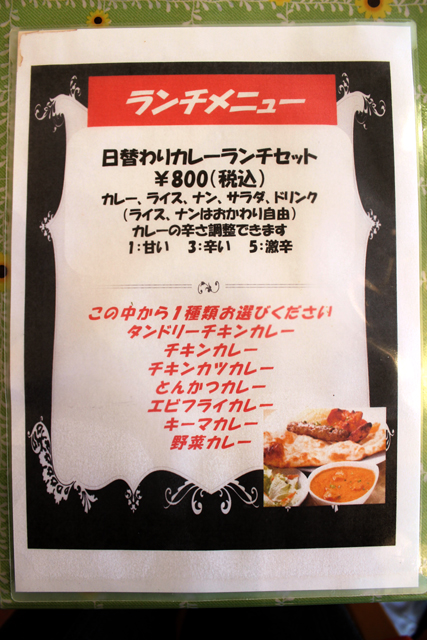 ランチメニュー
日替わりカレーランチセット
￥800(税込)
カレー、ライス、ナン、サラダ、ドリンク
(ライス、ナンはおかわり自由)
カレーの辛さ調整できます
1:甘い 3:辛い 5:激辛
この中から1種類お選びください
タンドリーチキンカレー
チキンカレー
チキンカツカレー
とんかつカレー
エビフライカレー
キーマカレー
野菜カレー